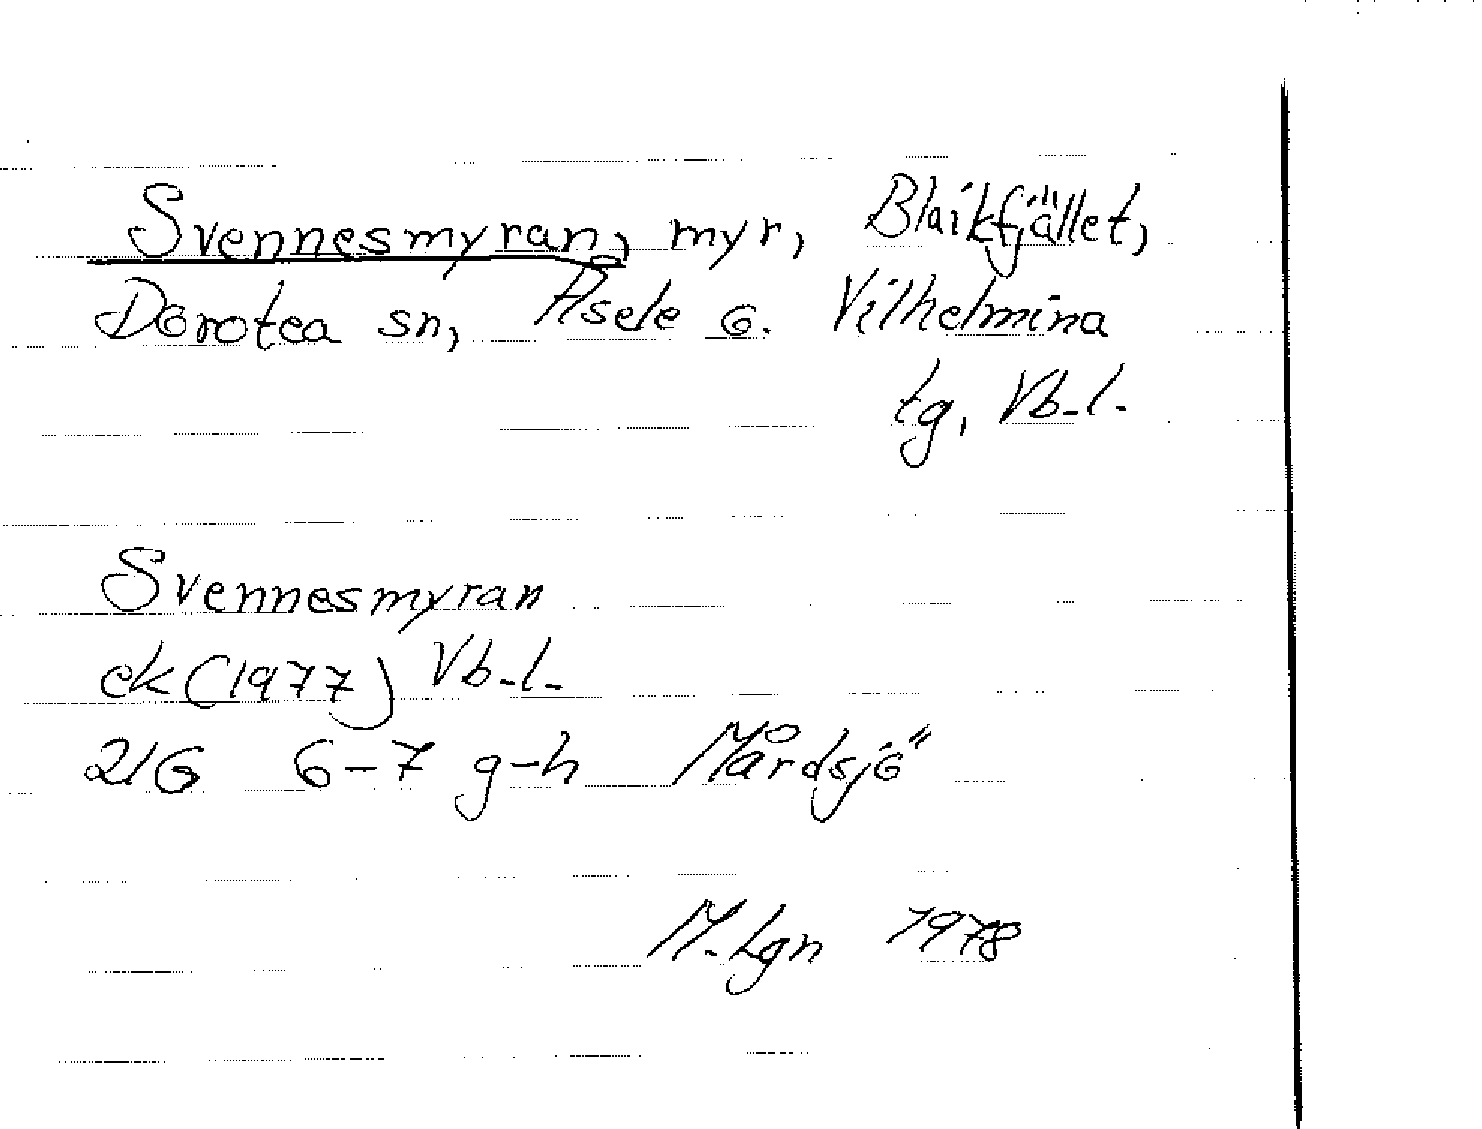 Svennesmyran, myr, Blaikfjället,
Dorotea sn, Åsele o. Vilhelmina
tg, Vb-l.
Svennesmyran
ek (1977) Vb-l-
21G 6-7 g-h Mårdsjö
M. Lgn 1978